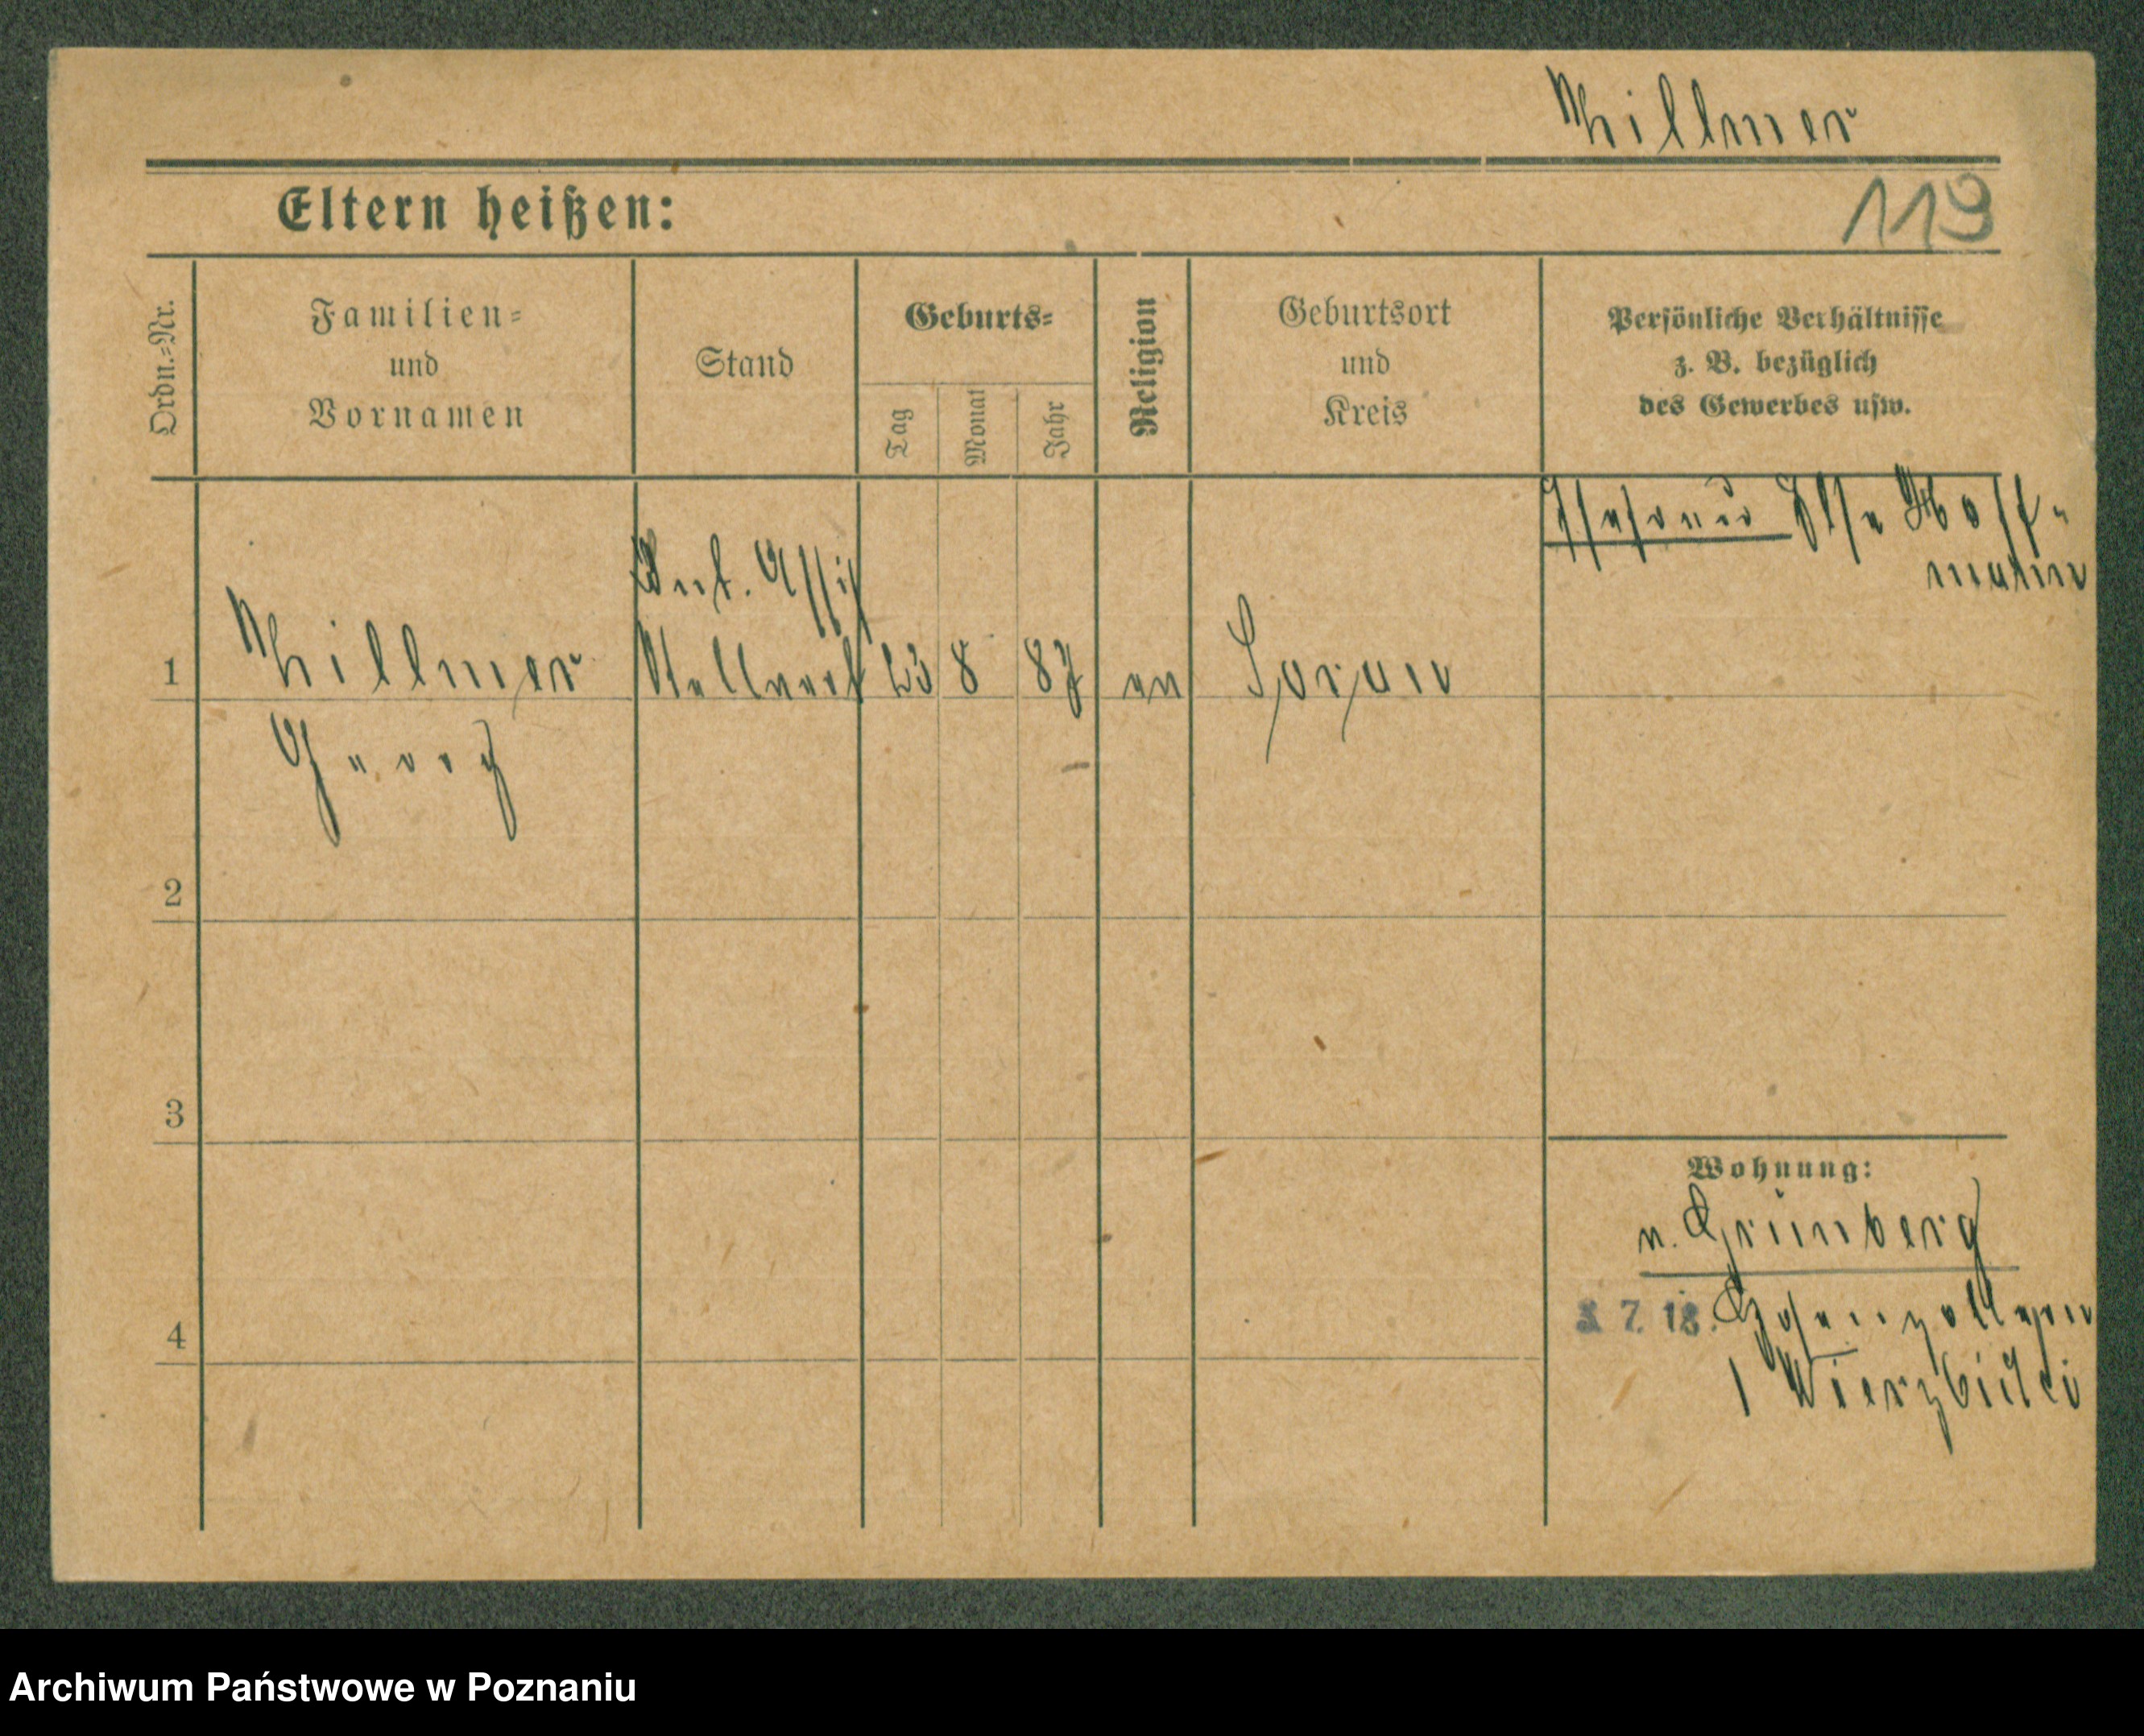 Millmer
Eltern heißen:
119
Ordn.-Nr.
Familien-
und
Vornamen
Stand
Geburts-
Tag
Monat
Jahr
Religion
Geburtsort
und
Kreis
Persönliche Verhältnisse
z. B. bezüglich
des Gewerbes usw.
Ehefrau Else Hoff-
mann
Assist
1
Millmer
Stellvert
23
8
87
ev
Sorau
Georg
2
3
4
Wohnung:
n. Grünberg
7. 18. Hohenzollern
1
Archiwum Państwowe w Poznaniu